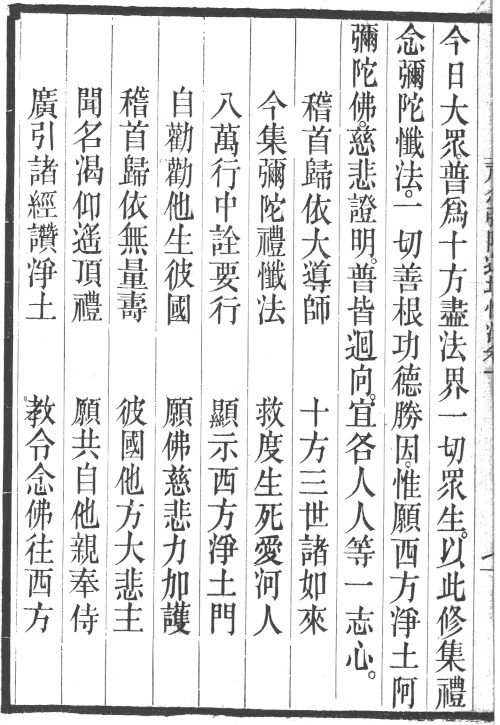 今日大眾。普爲十方盡法界一切眾生。以此修集禮
念彌陀懺法。一切善根功德勝因。惟願西方淨土阿
彌陀佛。慈悲證明。普皆迴向。宜各人人等一志心。
稽首歸依大導師　十方三世諸如來
今集彌陀禮懺法　救度生死愛河人
八萬行中詮要行　顯示西方淨土門
自勸勸他生彼國　願佛慈悲力加護
稽首歸依無量壽　彼國他方大悲主
聞名渴仰遙頂禮　願共自他親奉侍
廣引諸經讚淨土　教令念佛往西方